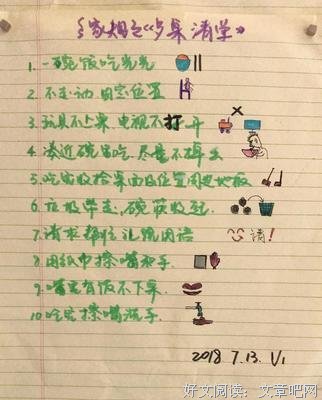 《夕桌清学》
1. 一碗饭吃光光
2. 不走动 固定位置
3. 玩具不上桌，电视不打开
4. 凑近碗留吃，尽量不掉出
5. 吃完收拾桌面及位置周边地板
6. 垃圾带走，碗筷收起.
7. 请求帮忙 礼貌用语 请!
8. 用纸巾擦嘴和手.
9. 嘴里有饭不下桌.
10. 吃完擦嘴洗手.
2018 7.13. V1
好文阅读：文章吧网